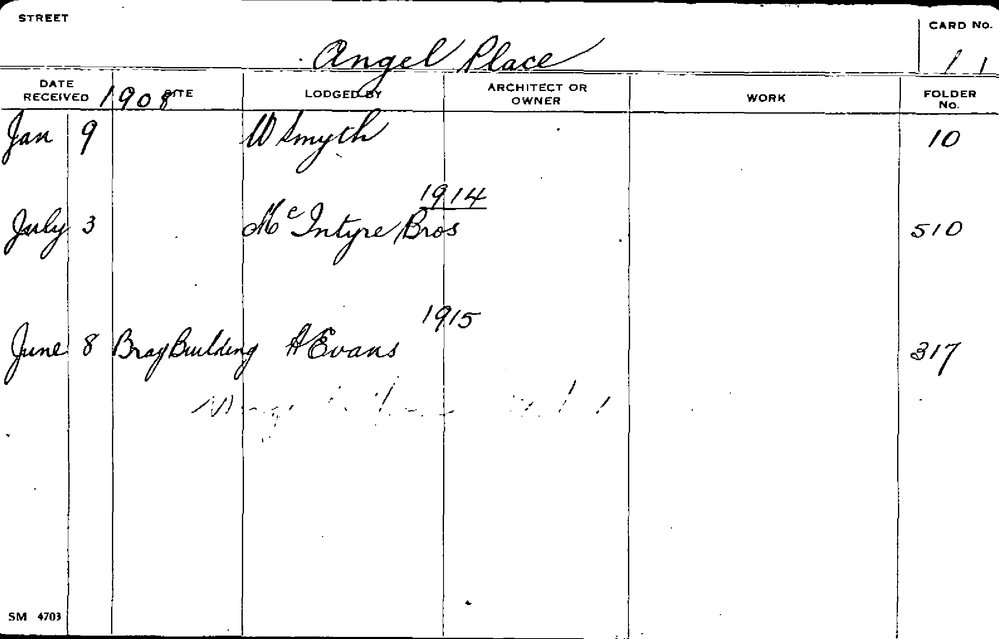 STREET
CARD No.
Angel Place
1 1
DATE RECEIVED 1908 SITE LODGED BY ARCHITECT OR OWNER WORK FOLDER No.
Jan 9 W Smyth 10
1914
July 3 Mc Intyre Bros 510
1915
June 8 Bray Building A Evans 317
SM 4703